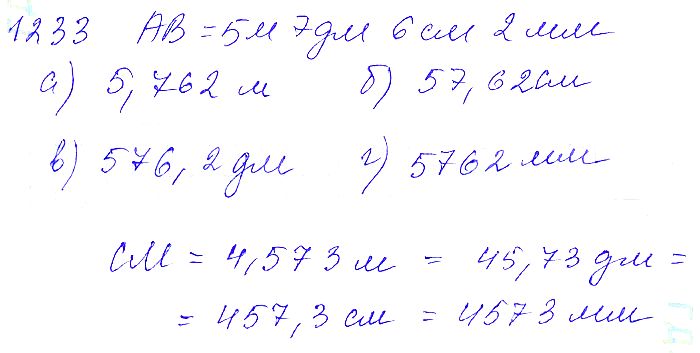 1233 AB = 5м 7дм 6см 2мм
а) 5,762 м б) 57,62см
в) 576,2дм г) 5762мм
СМ = 4,573 м = 45,73 дм =
= 457,3 см = 4573 мм